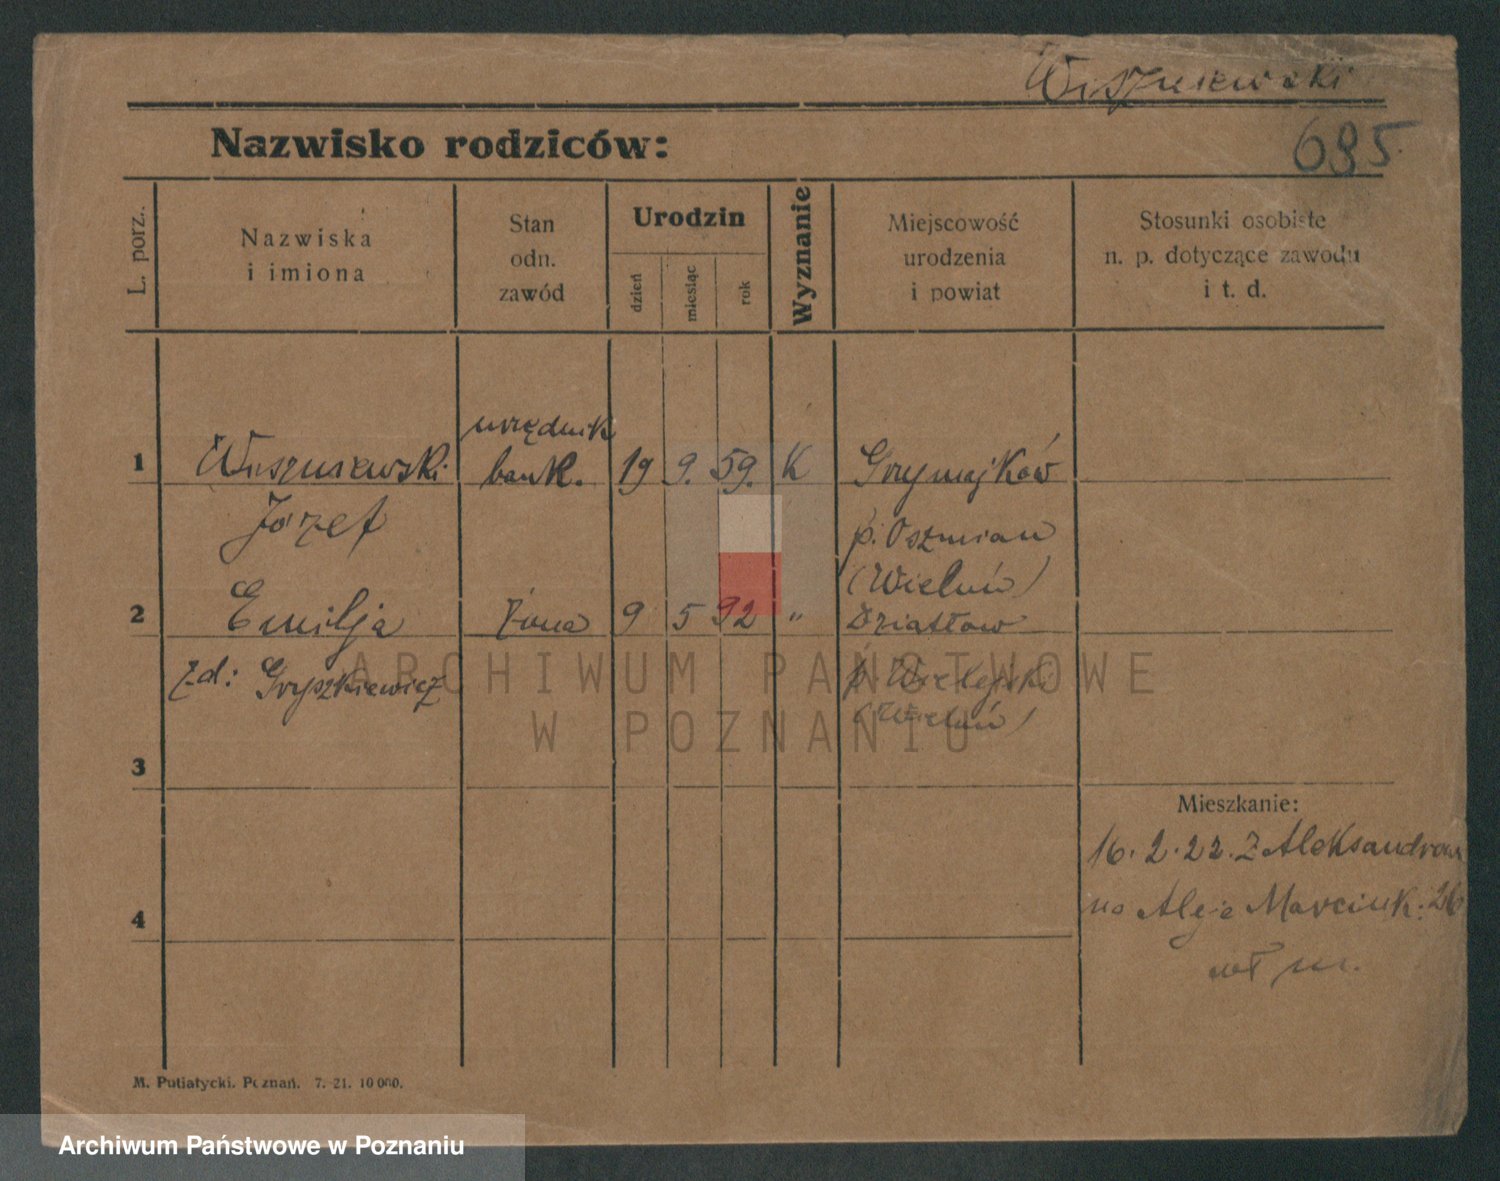 Wiszniewski
Nazwisko rodziców:
685
L. porz.
Nazwiska
i imiona
Stan
odn.
zawód
Urodzin
dzień
miesiąc
rok
Wyznanie
Miejscowość
urodzenia
i powiat
Stosunki osobiste
n. p. dotyczące zawodu
i t. d.
urzędnik
1 Wiszniewski bank. 19 9. 59. K Grzymajków
Józef p. Oszmian
(Wieluń)
2 Emilja żona 9 5 92 „ Działow
zd: Gryszkiewicz p.
(Wieluń)
3
Mieszkanie:
16.2.22. Z Aleksandrow
na Aleje Marcink. 26
4
M. Putiatycki. Poznań. 7. 21. 10 000.
ARCHIWUM PAŃSTWOWE
W POZNANIU
Archiwum Państwowe w Poznaniu